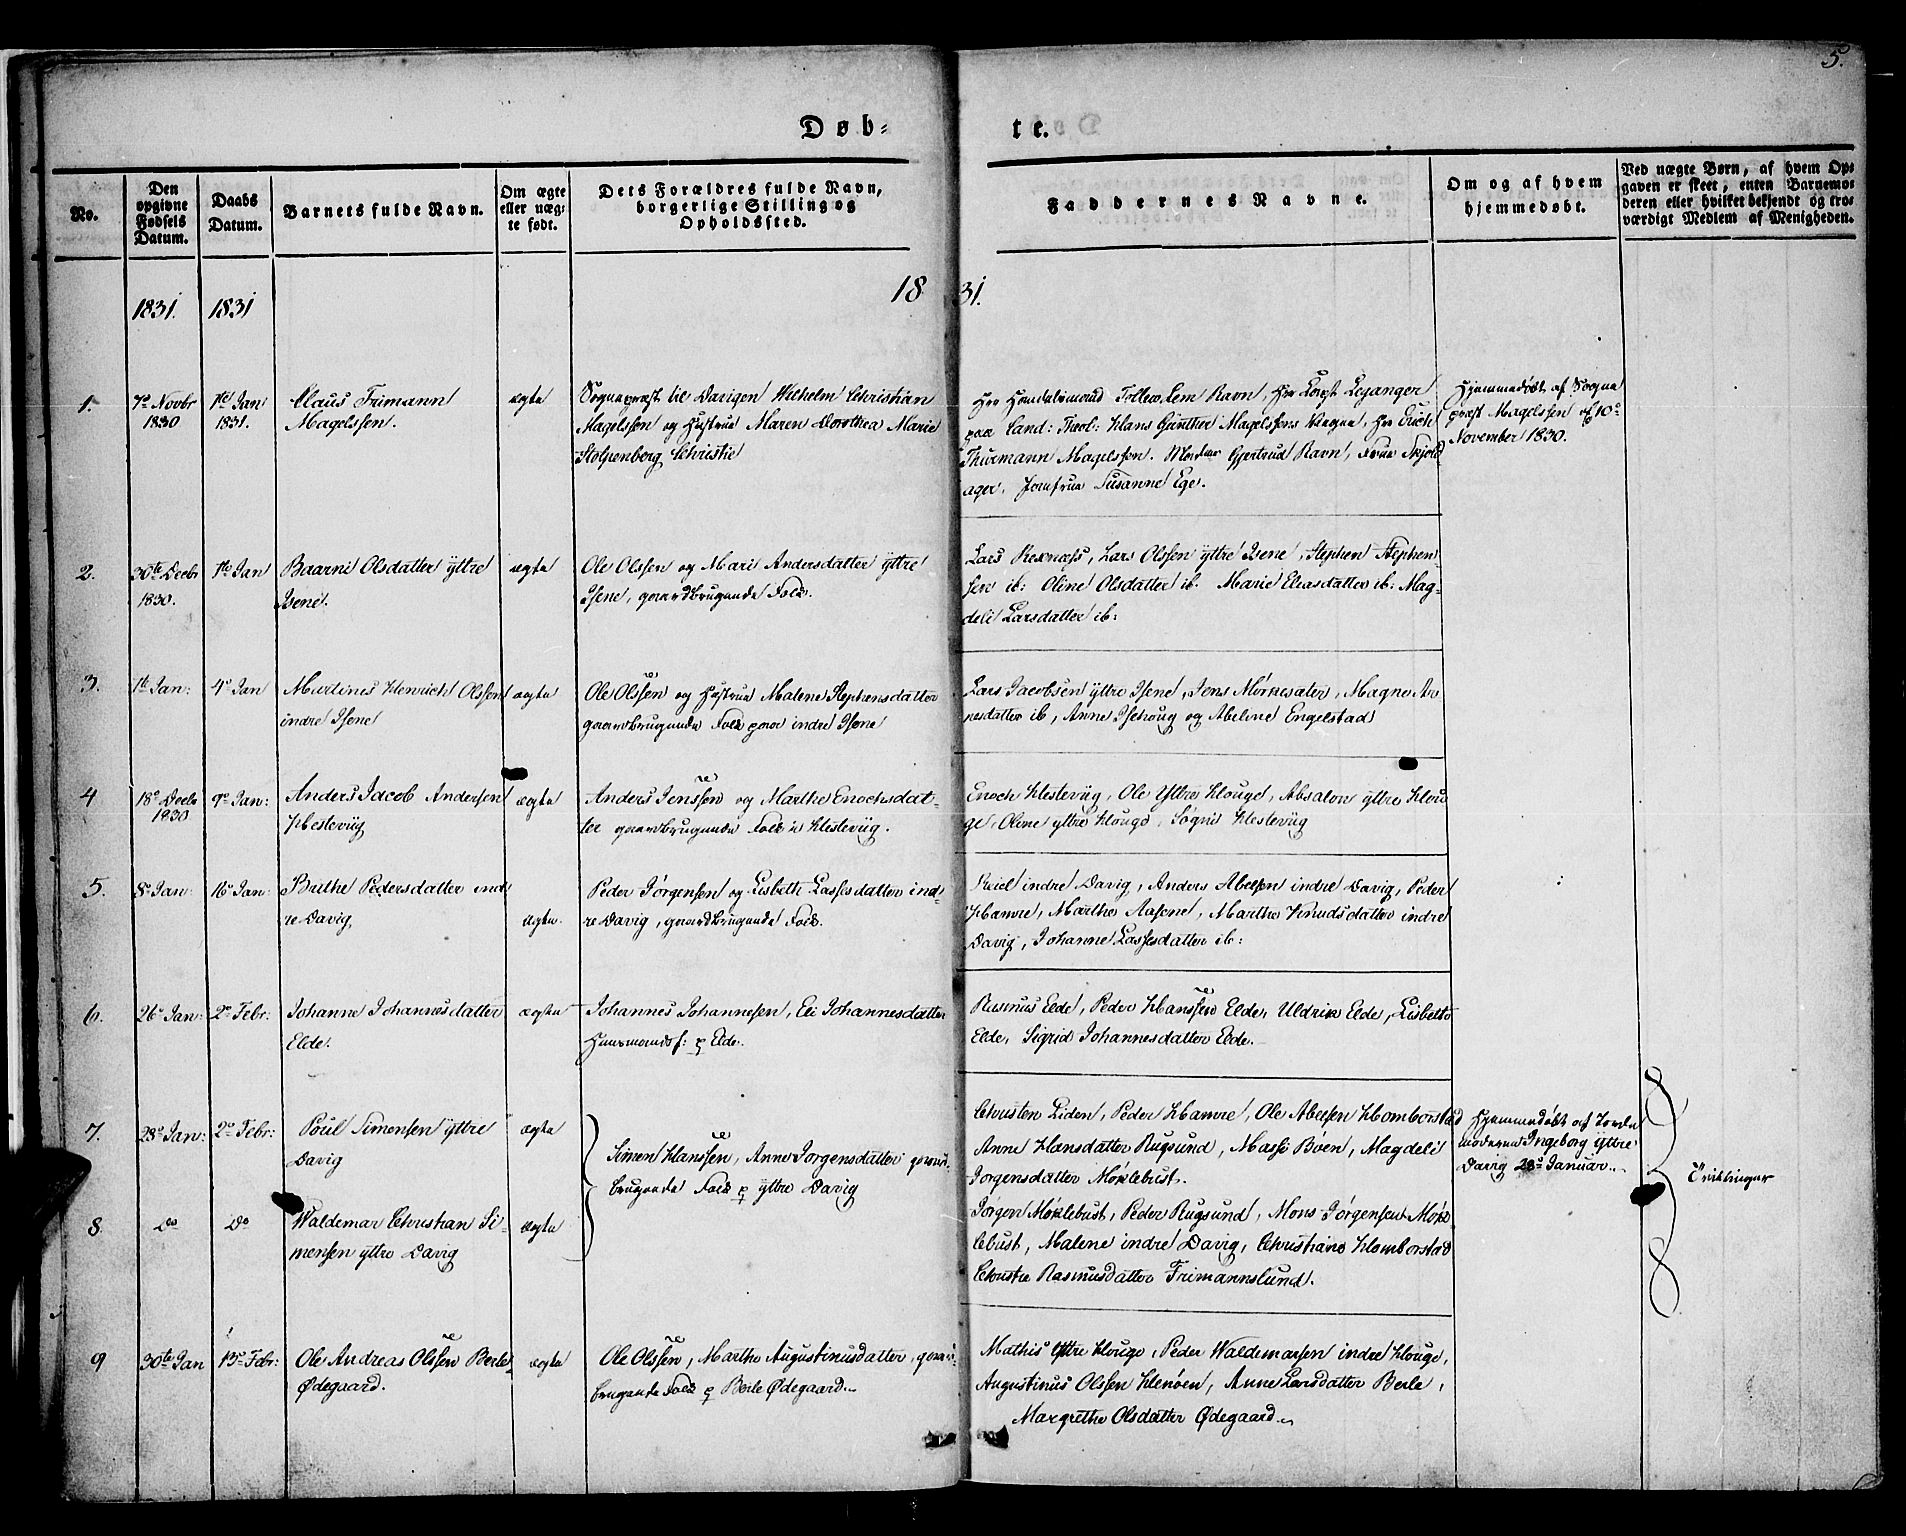 5.
Døb-
te.
No.
Den
opgivne
Fødsels
Datum.
Daabs
Datum.
Barnets fulde Navn.
Om ægte
eller uæg-
te født.
Dets Forældres fulde Navn,
borgerlige Stilling og
Opholdssted.
Faddernes Navne.
Om og af hvem
hjemmedøbt.
Ved uægte Børn, af hvem Op-
gaven er skeet, enten Barnemo-
deren eller hvilket bekjendt og tro-
værdigt Medlem af Menigheden.
1831.
1831
18
31.
1.
7de Novbr
1830
1ste Jan
1831.
Claus Frimann
Magelssen.
ægte
Sognepræst til Davigen Wilhelm Christian
Magelssen og Hustrue Maren Dorothea Marie
Stolpenberg Christie
Hr Landt: Theol: Hans Günther Magelssens Vegne, Hr Erich
Thurmann Magelssen. Madme Gjertrud Ravn, Frue Skjold
ager, Jomfrue Susanne Ege.
Hjemmedøbt af Sogne
præst Magelssen d 10de
November 1830.
2.
30te Decbr
1830.
1ste Jan
Baarni Olsdatter yttre
Isene.
ægte
Ole Olssen og Mari Andersdatter yttre
Isene, gaardbrugende Folk.
Lars Rexnæss, Lars Olssen yttre Isene, Stephen Stephen-
sen ib: Oline Olsdatter ib. Marie Eliasdatter ib: Mag-
deli Larsdatter ib:
3.
1ste Jan:
4de Jan
Martines Henrich Olssen
indre Isene
ægte
Ole Olssen og Hustrue Malene Stephensdatter
gaardbrugende Folk paa indre Isene
Lars Jacobsen yttre Isene, Jens Mørkesæter, Magne Ar
nesdatter ib, Anne Isehoug og Abeline Engelstad
4
18de Decbr
1830
9de Jan:
Anders Jacob Andersen
Hesteviig
ægte
Anders Jenssen og Marthe Enochsdat-
ter gaardbrugende Folk i Hesteviig.
Enoch Hesteviig, Ole Yttre Houge, Absalon yttre Hou
ge, Oline yttre Houge, Søgni Hesteviig
5.
8de Jan:
16de Jan:
Brithe Pedersdatter ind
re Davig
ægte.
Peder Jørgensen og Lisbeth Lassesdatter ind-
re Davig, gaardbrugende Folk.
indre Davig, Anders Abelsen indre Davig, Peder
Hamre, Marthe Aasene, Marthe Knudsdatter indre
Davig, Johanne Lassesdatter ib:
6.
26de Jan:
2de Febr:
Johanne Johannesdatter
Elde.
ægte
Johannes Johannesen, Eli Johannesdatter
Huusmandsf: p Elde.
Rasmus Elde, Peder Hanssen Elde, Uldrik Elde, Lisbette
Elde, Sigrid Johannesdatter Elde.
7.
28de Jan:
2de Febr:
Poul Simensen yttre
Davig
ægte
Simen Hanssen, Anne Jørgensdatter gaard-
brugende Folk p yttre Davig
Christen Liden, Peder Hamre, Ole Abelsen Homborstad
Anne Hansdatter Rugsund, Massi Bøen, Magdeli
Jørgensdatter Møklebust.
Hjemmedøbt af Jorde
moderen Ingeborg yttre
Davig 28de Januar.
Tvillinger
8.
Do
Do
Waldemar Christian Si-
mensen yttre Davig
ægte
Jørgen Møklebust, Peder Rugsund, Mons Jørgensen Møk
lebust, Malene indre Davig, Christiane Homborstad
Christre Rasmusdatter Frimannslund.
9
30te Jan
13de Febr:
Ole Andreas Olssen Berle
Ødegaard.
ægte
Ole Olssen, Marthe Augustinusdatter, gaard-
brugende Folk p Berle Ødegaard.
Mathis Yttre Houge, Peder Waldemarsen indre Houge,
Augustinus Olssen Henøen, Anne Larsdatter Berle,
Margrethe Olsdatter Ødegaard.